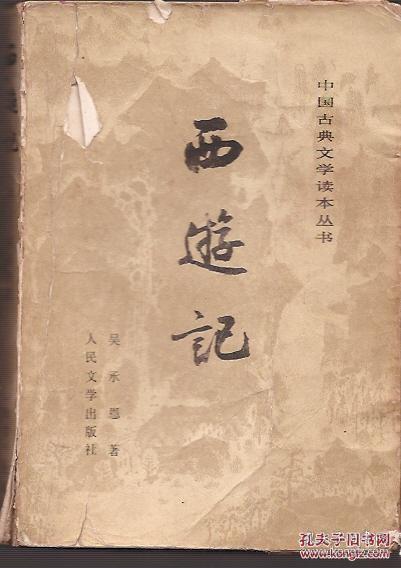 中国古典文学读本丛书
西遊記
吴承恩 著
人民文学出版社
孔夫子旧书网